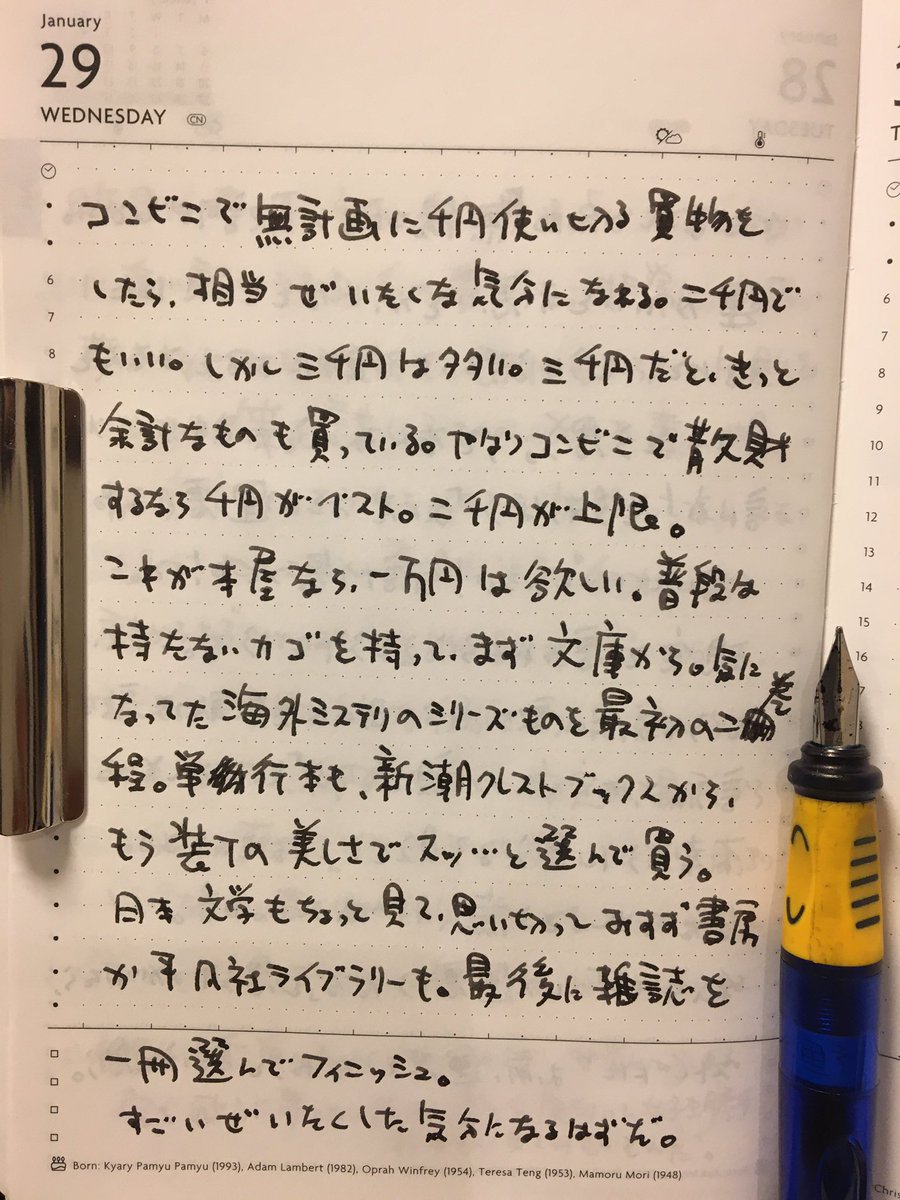 January
29
WEDNESDAY CN
28
TUESDAY
コンビニで無計画に千円使い切る買物を
したら、相当ぜいたくな気分になれる。二千円で
もいい。しかし三千円は多い。三千円だと、きっと
余計なものも買っている。やはりコンビニで散財
するなら千円がベスト。二千円が上限。
これが本屋なら、一万円は欲しい。普段は
持たないカゴを持って、まず文庫から。気に
なってた海外ミステリのシリーズものを最初の二巻
程。単行本も、新潮クレストブックスから、
もう装丁の美しさでスッ…と選んで買う。
日本文学もちょっと見て、思い切ってみすず書房
か平凡社ライブラリーも。最後に雑誌を
一冊選んでフィニッシュ。
すごいぜいたくした気分になるはずだ。
6
7
8
Born: Kyary Pamyu Pamyu (1993), Adam Lambert (1982), Oprah Winfrey (1954), Teresa Teng (1953), Mamoru Mori (1948)
T
6
7
8
9
10
11
12
13
14
15
16
Chris